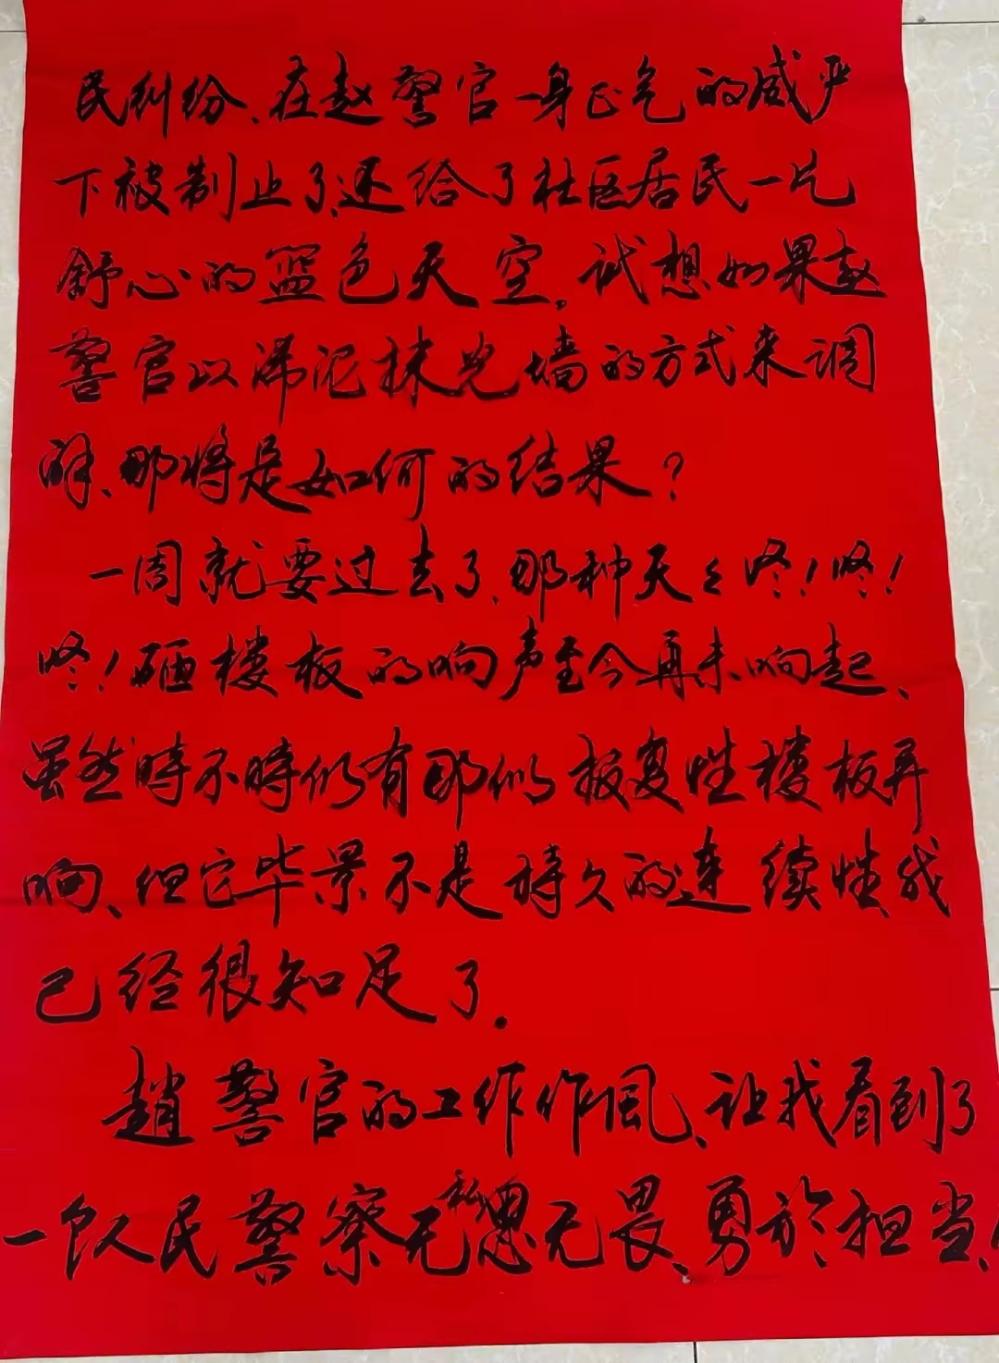 民纠纷、在赵警官一身正气的威严
下被制止了、还给了社区居民一片
舒心的蓝色天空。试想如果赵
警官以稀泥抹光墙的方式来调
解、那将是如何的结果？
一周就要过去了、那种天々咚！咚！
咚！砸楼板的响声至今再未响起、
虽然時不時仍有那些报复性楼板弄
响、但它毕景不是持久的连续性、我
已经很知足了.
趙警官的工作作風、让我看到了
一名人民警察无私無畏、勇於担当、